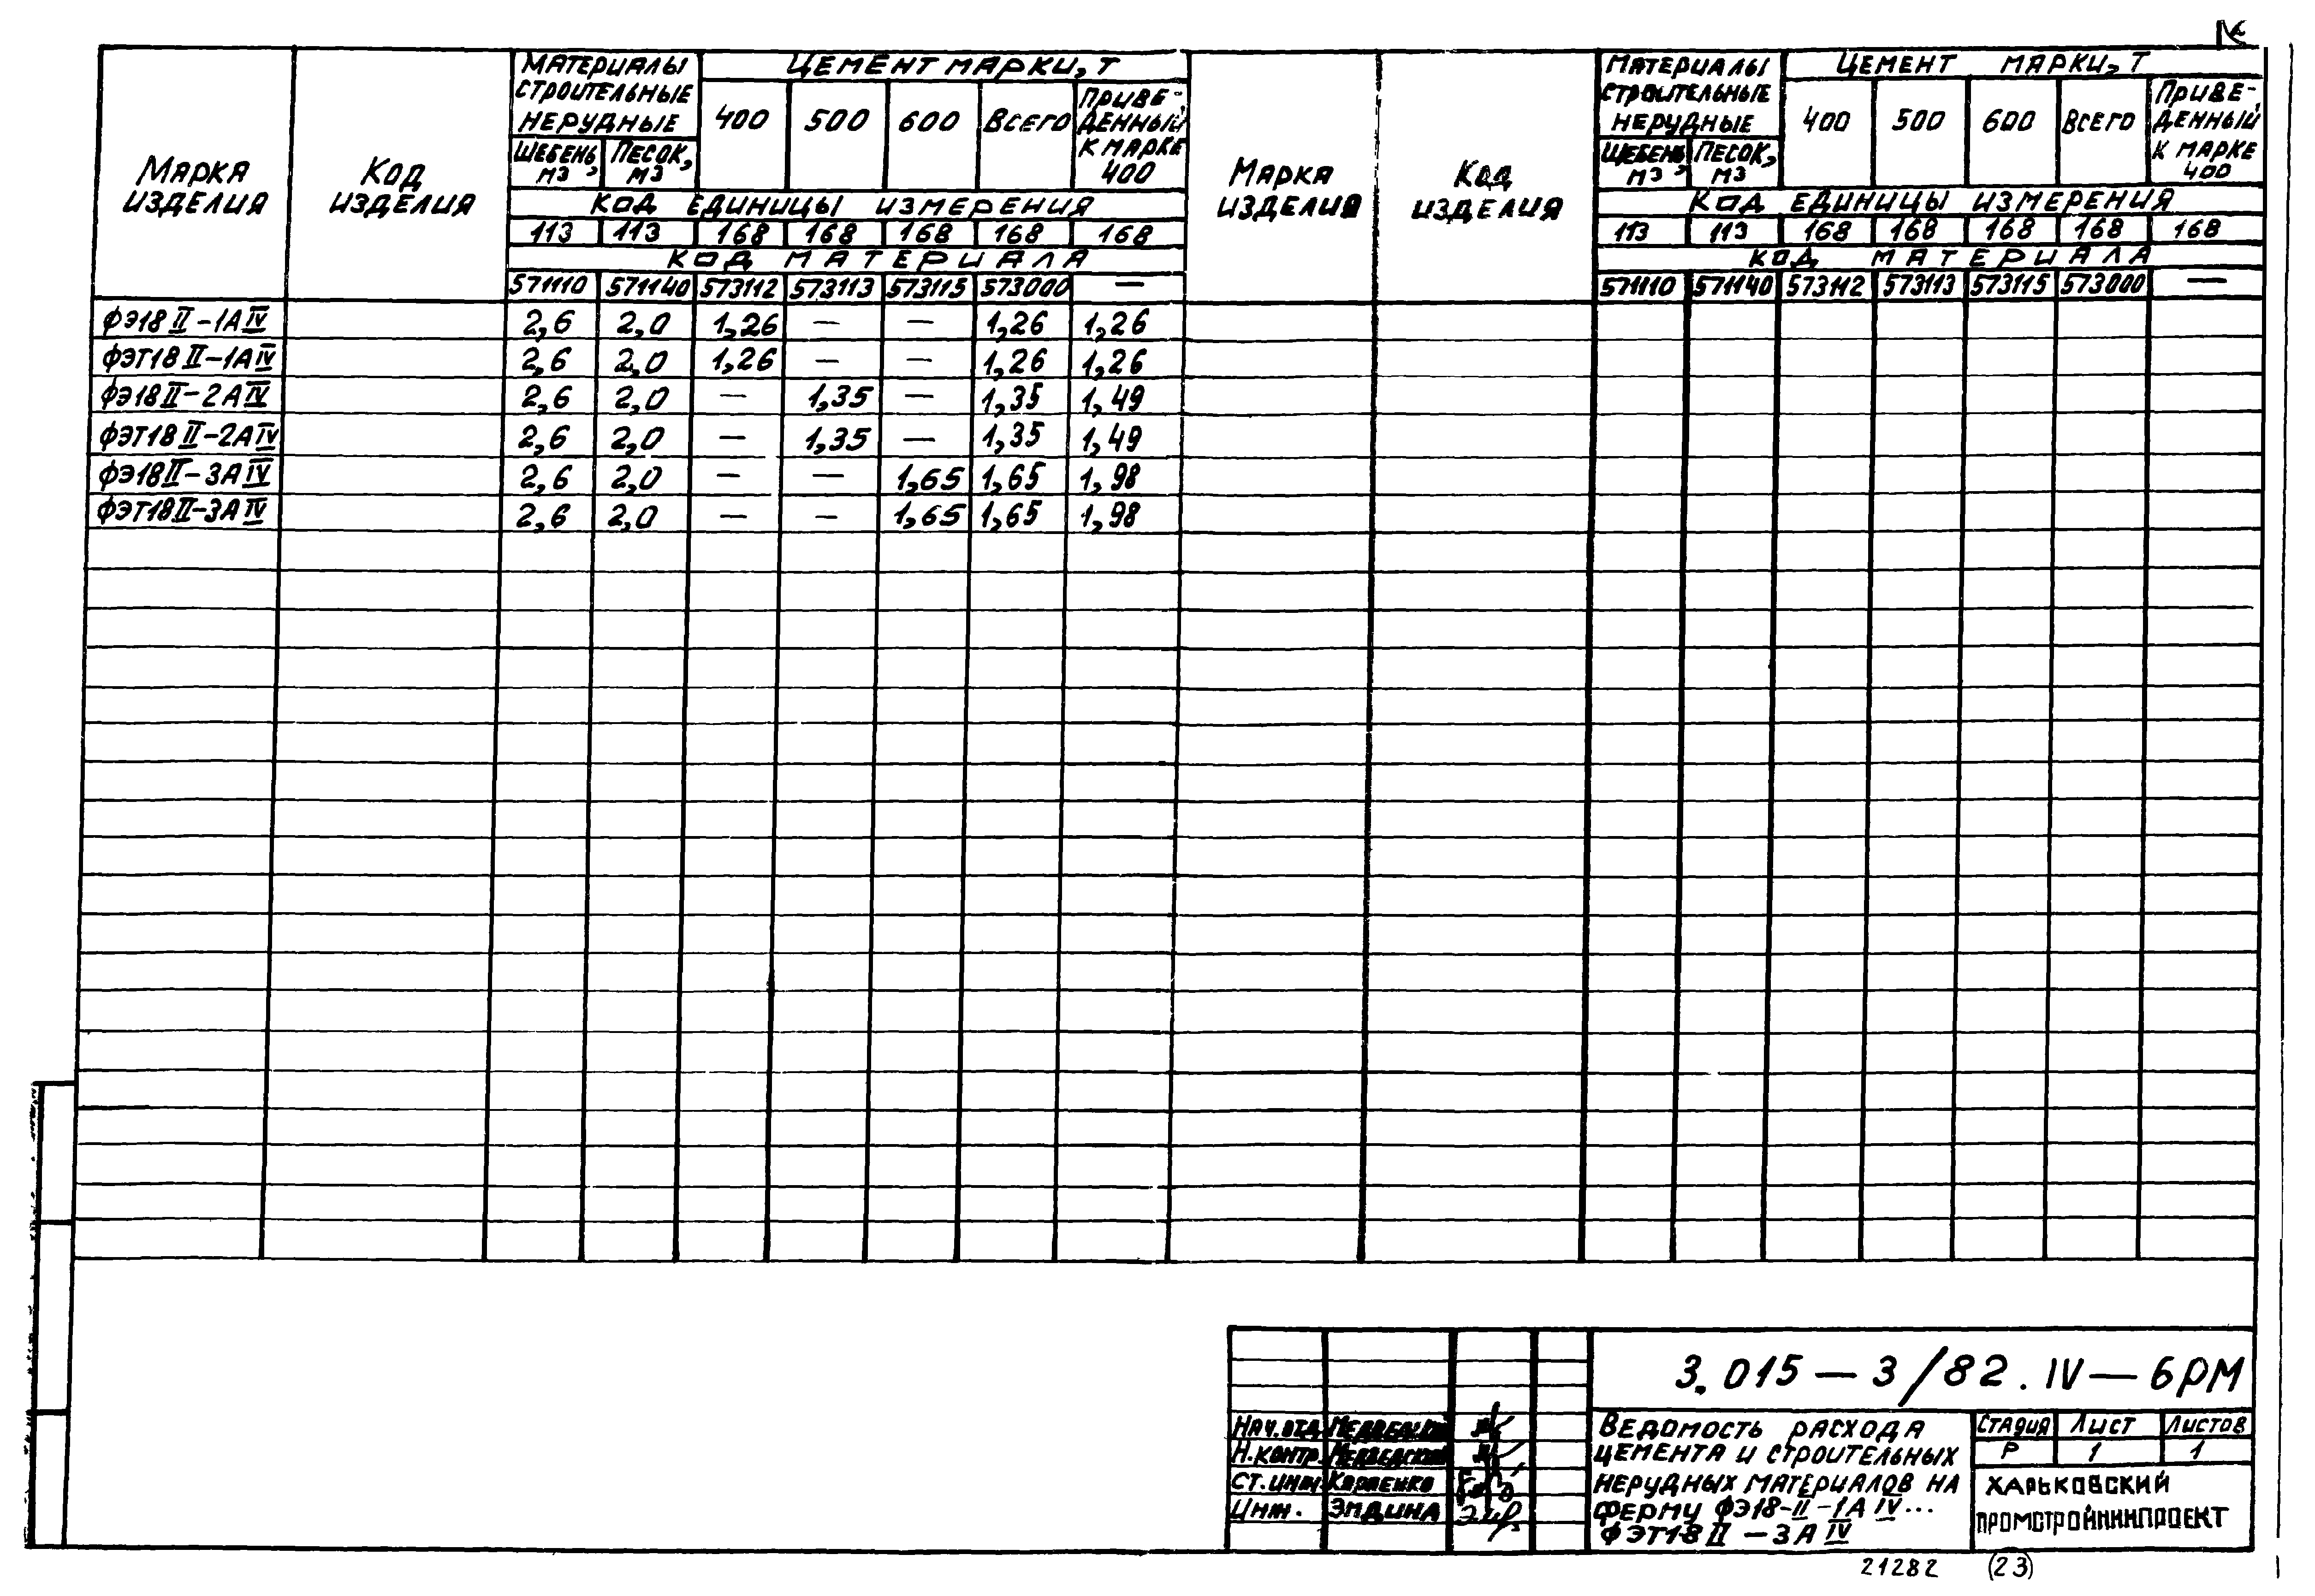 МАРКА ИЗДЕЛИЯ
КОД ИЗДЕЛИЯ
МАТЕРИАЛЫ СТРОИТЕЛЬНЫЕ НЕРУДНЫЕ
ЦЕМЕНТ МАРКИ, Т
ЩЕБЕНЬ, М3
ПЕСОК, М3
400
500
600
ВСЕГО
ПРИВЕ-ДЕННЫЙ К МАРКЕ 400
КОД ЕДИНИЦЫ ИЗМЕРЕНИЯ
113 113 168 168 168 168 168
КОД МАТЕРИАЛА
571110 571140 573112 573113 573115 573000 —
ФЭ18 II-1А IV 2,6 2,0 1,26 — — 1,26 1,26
ФЭТ18 II-1А IV 2,6 2,0 1,26 — — 1,26 1,26
ФЭ18 II-2А IV 2,6 2,0 — 1,35 — 1,35 1,49
ФЭТ18 II-2А IV 2,6 2,0 — 1,35 — 1,35 1,49
ФЭ18 II-3А IV 2,6 2,0 — — 1,65 1,65 1,98
ФЭТ18 II-3А IV 2,6 2,0 — — 1,65 1,65 1,98
МАРКА ИЗДЕЛИЯ
КОД ИЗДЕЛИЯ
МАТЕРИАЛЫ СТРОИТЕЛЬНЫЕ НЕРУДНЫЕ
ЦЕМЕНТ МАРКИ, Т
ЩЕБЕНЬ, М3
ПЕСОК, М3
400
500
600
ВСЕГО
ПРИВЕ-ДЕННЫЙ К МАРКЕ 400
КОД ЕДИНИЦЫ ИЗМЕРЕНИЯ
113 113 168 168 168 168 168
КОД МАТЕРИАЛА
571110 571140 573112 573113 573115 573000 —
3.015 — 3/82. IV — 6РМ
НАЧ.ОТД. МЕДВЕДСКИЙ
Н.КОНТР. МЕДВЕДСКИЙ
СТ.ИНЖ.
ИНЖ. ЭМДИНА
ВЕДОМОСТЬ РАСХОДА
ЦЕМЕНТА И СТРОИТЕЛЬНЫХ
НЕРУДНЫХ МАТЕРИАЛОВ НА
ФЕРМУ ФЭ18-II-1А IV...
ФЭТ18 II — 3А IV
СТАДИЯ ЛИСТ ЛИСТОВ
Р 1 1
ХАРЬКОВСКИЙ
ПРОМСТРОЙНИИПРОЕКТ
21282 (23)